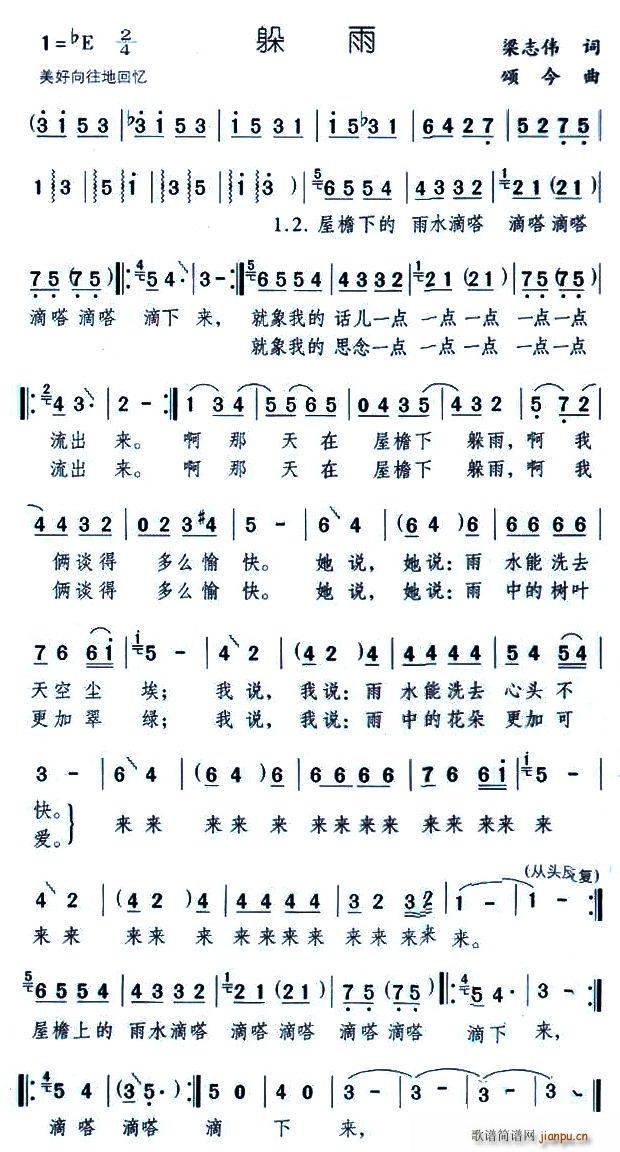 1=♭E 2/4 躲 雨 梁志伟 词
美好向往地回忆 颂 今 曲
(3 i 5 3 | ♭3 i 5 3 | i 5 3 1 | i 5 ♭3 1 | 6 4 2 7 | 5 2 7 5 |
1 3 | 5 i | 3 5 | i 3 ) | 6 5 5 4 | 4 3 3 2 | 2 1 (2 1) |
1.2. 屋檐下的 雨水滴嗒 滴嗒滴嗒
7 5 (7 5) |: 5 4· | 3 - :| 6 5 5 4 | 4 3 3 2 | 2 1 (2 1) | 7 5 (7 5) |
滴嗒滴嗒 滴下 来， 就象我的 话儿一点 一点一点 一点一点
就象我的 思念一点 一点一点 一点一点
|: 4 3· | 2 - :| 1 3 4 | 5 5 6 5 | 0 4 3 5 | 4 3 2 | 5 7 2 |
流出 来。 啊 那 天 在 屋檐下 躲雨，啊 我
流出 来。 啊 那 天 在 屋檐下 躲雨，啊 我
4 4 3 2 | 0 2 3 ♯4 | 5 - | 6 4 | (6 4) 6 | 6 6 6 6 |
俩谈得 多么愉 快。 她 说， 她 说：雨 水能洗去
俩谈得 多么愉 快。 她 说， 她 说：雨 中的树叶
7 6 6 i | 5 - | 4 2 | (4 2) 4 | 4 4 4 4 | 5 4 5 4 |
天空 尘 埃； 我 说， 我 说：雨 水能洗去 心头 不
更加 翠 绿； 我 说， 我 说：雨 中的花朵 更加 可
3 - | 6 4 | (6 4) 6 | 6 6 6 6 | 7 6 6 i | 5 - |
快。
爱。 来 来 来 来 来 来来来来 来来 来 来
(从头反复)
4 2 | (4 2) 4 | 4 4 4 4 | 3 2 3 2 | 1 - | 1 - :|
来 来 来 来 来 来来来来 来来来来 来。
6 5 5 4 | 4 3 3 2 | 2 1 (2 1) | 7 5 (7 5) |: 5 4· | 3 - :|
屋檐上的 雨水滴嗒 滴嗒滴嗒 滴嗒滴嗒 滴下 来，
|: 5 4 | (3 5·) :| 5 0 | 4 0 | 3 - | 3 - | 3 - ||
滴嗒 滴嗒 滴 下 来，
歌谱简谱网 jianpu.cn